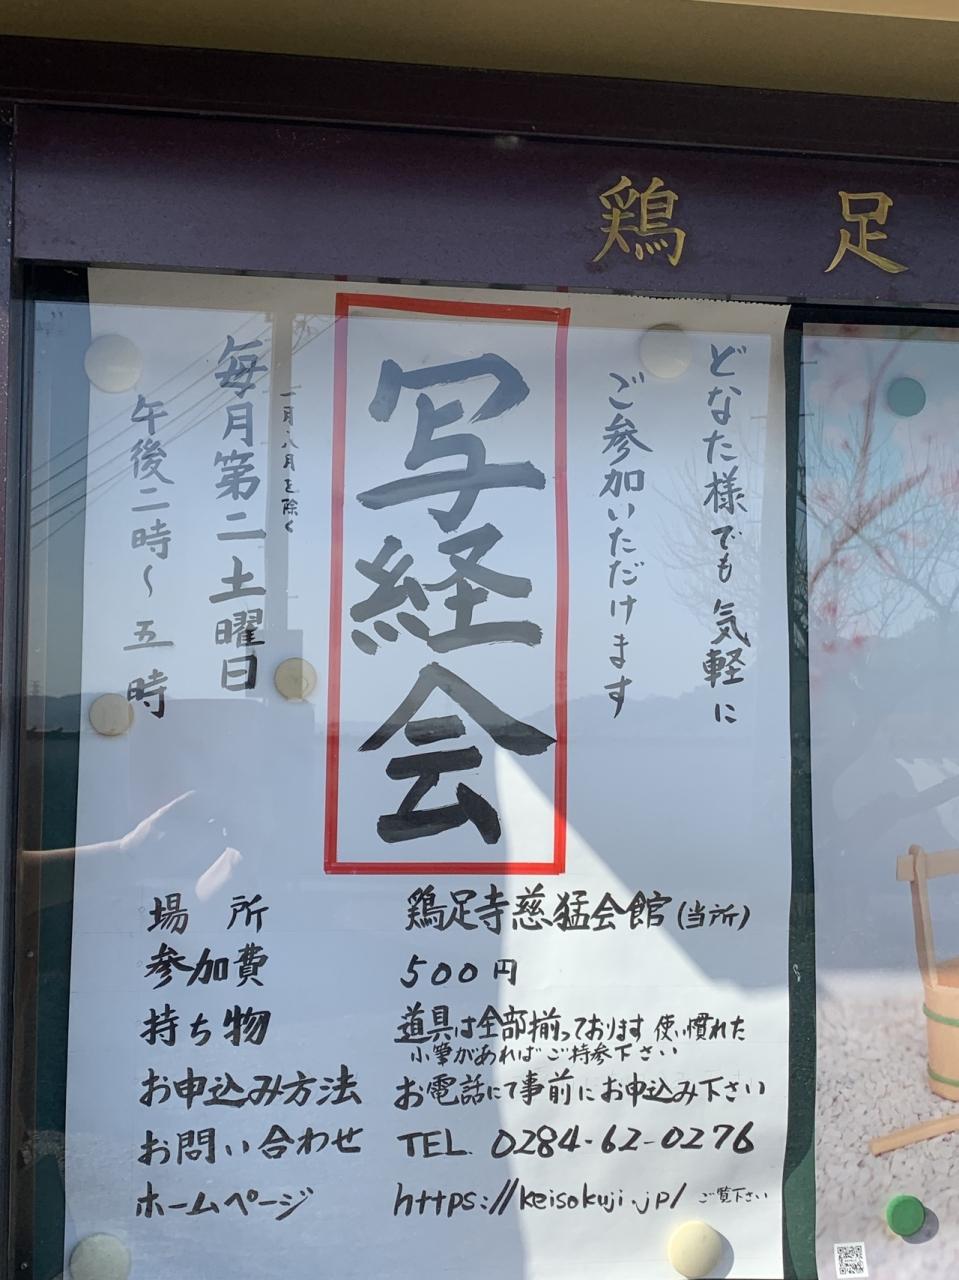 鶏足
どなた様でも気軽に
ご参加いただけます
写経会
一月八月を除く
毎月第二土曜日
午後二時〜五時
場所 鶏足寺慈猛会館(当所)
参加費 500円
持ち物 道具は全部揃っております 使い慣れた
小筆があればご持参下さい
お申込み方法 お電話にて事前にお申込み下さい
お問い合わせ TEL. 0284-62-0276
ホームページ https://keisokuji.jp/ ご覧下さい